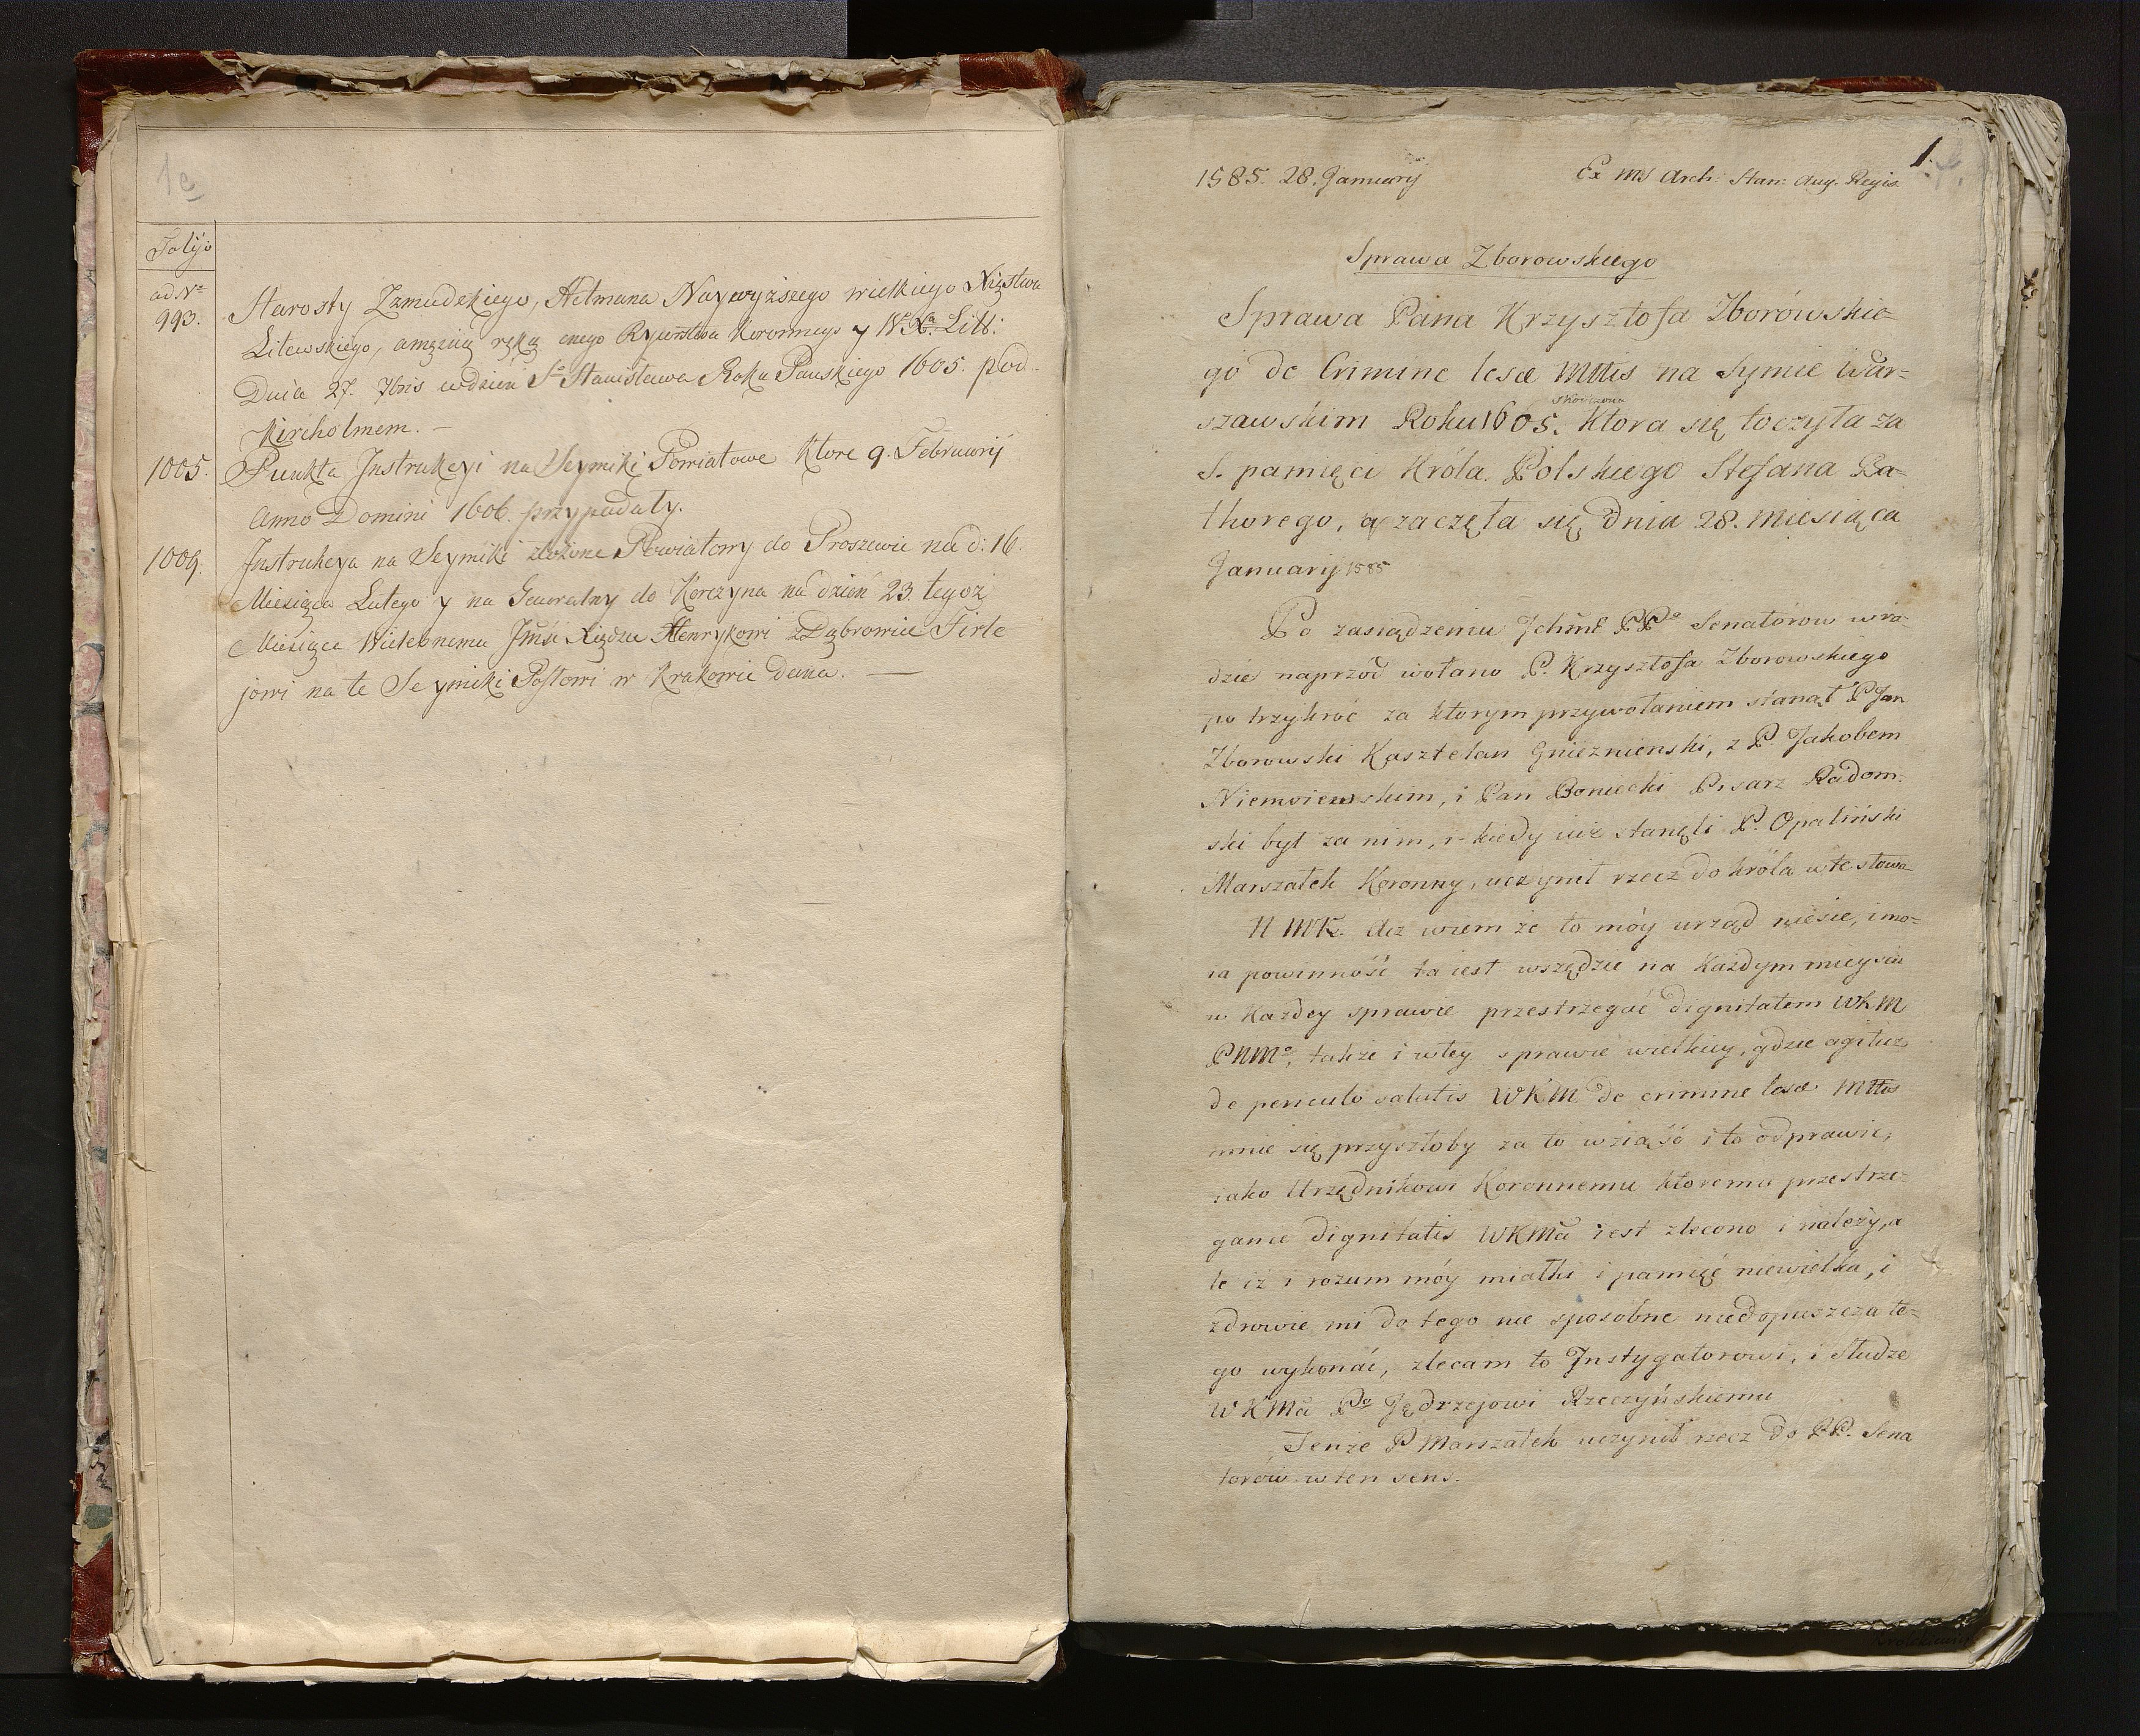 1e
Folijo
ad Nr
993.
Starosty Zmudzkiego, Hetmana Naywyższego wielkiego Xięstwa
Litewskiego, a mężną ręką onego Rycerstwa Koronnego y W. X. Litt:
Dnia 27. 7bris w dzień S. Stanisława Roku Pańskiego 1605. pod
Kircholmem. —
1005. Punkta Instrukcyi na Seymiki Powiatowe Ktore 9. Februarij
Anno Domini 1606. przypadały.
1009. Instrukcya na Seymiki złożone Powiatowy do Proszewic na d: 16.
Miesiąca Lutego y na Generalny do Korczyna na dzień 23. tegoż
Miesiąca Wielebnemu Jmści Xiędzu Henrykowi z Dąbrowice Firle
jowi na te Seymiki Posłowi w Krakowie dana. —
1.
1585. 28. Januarij Ex MS Arch: Stan: Aug. Regis.
Sprawa Zborowskiego
Sprawa Pana Krzysztofa Zborówskie-
go de Crimine lesæ Mttis na Symie War-
skończona
szawskim Roku 1605. Ktora się toczyła za
S. pamięci Króla Polskiego Stefana Ba-
thorego, a zaczęta się Dnia 28. miesiąca
Januarij 1585
Po zasiądzeniu Ichmć PPo Senatórow w ra-
dzie naprzód wołano P. Krzysztofa Zborowskiego
po trzykroć za ktorym przywołaniem stanął P Jan
Zborowski Kasztelan Gnieznienski, z P. Jakobem
Niemoiewskim, i Pan Boniecki Pisarz Radom-
ski był za nim, i kiedy iuż stanęli P. Opaliński
Marszałek Koronny, uczynił rzecz do króla w te słowa
N MK. Acz wiem że to móy urząd niesie, i mo-
ia powinność ta iest wszędzie na każdym mieyscu
w każdey sprawie przestrzegać dignitatem WKM
PNMo, także i w tey sprawie wielkiey, gdzie agitur
de periculo salutis WKM de crimine lesæ Mttis
mnie się przyszłoby za to wziąść i to odprawić,
iako Urzędnikowi Koronnemu ktoremu przestrze-
ganie dignitatis WKMci iest zlecono i należy, a
le iż i rozum móy miałki i pamięć niewielka, i
zdrowie mi do tego nie sposobne niedopuszcza te-
go wykonać, zlecam to Instygatorowi, i Słudze
WKMci Po Jędrzejowi Rzeczyńskiemu
Tenże P Marszałek uczynił rzecz do PP. Sena
torów w ten sens.